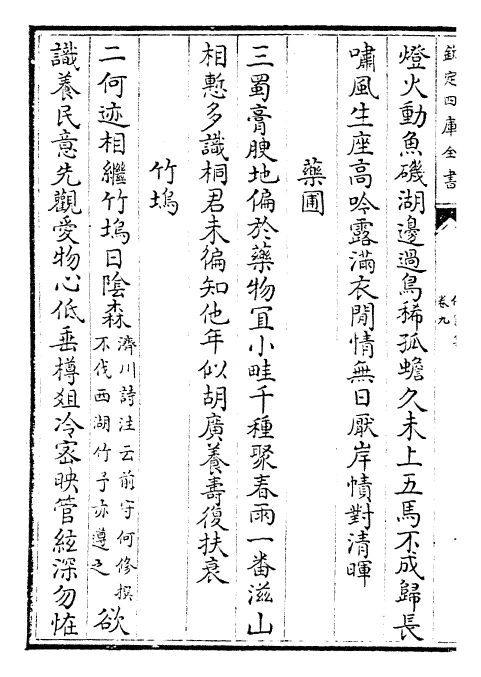 欽定四庫全書
卷九
燈火動魚磯湖邊過鳥稀孤蟾久未上五馬不成歸長
嘯風生座高吟露滿衣閒情無日厭岸幘對清暉
藥圃
三蜀膏腴地偏於藥物宜小畦千種聚春雨一番滋山
相慙多識桐君未徧知他年似胡廣養壽復扶衰
竹塢
二何迹相繼竹塢日陰森濟川詩注云前守何修撰不伐西湖竹予亦遵之欲
識養民意先觀愛物心低垂樽俎冷密映管絃深勿恠